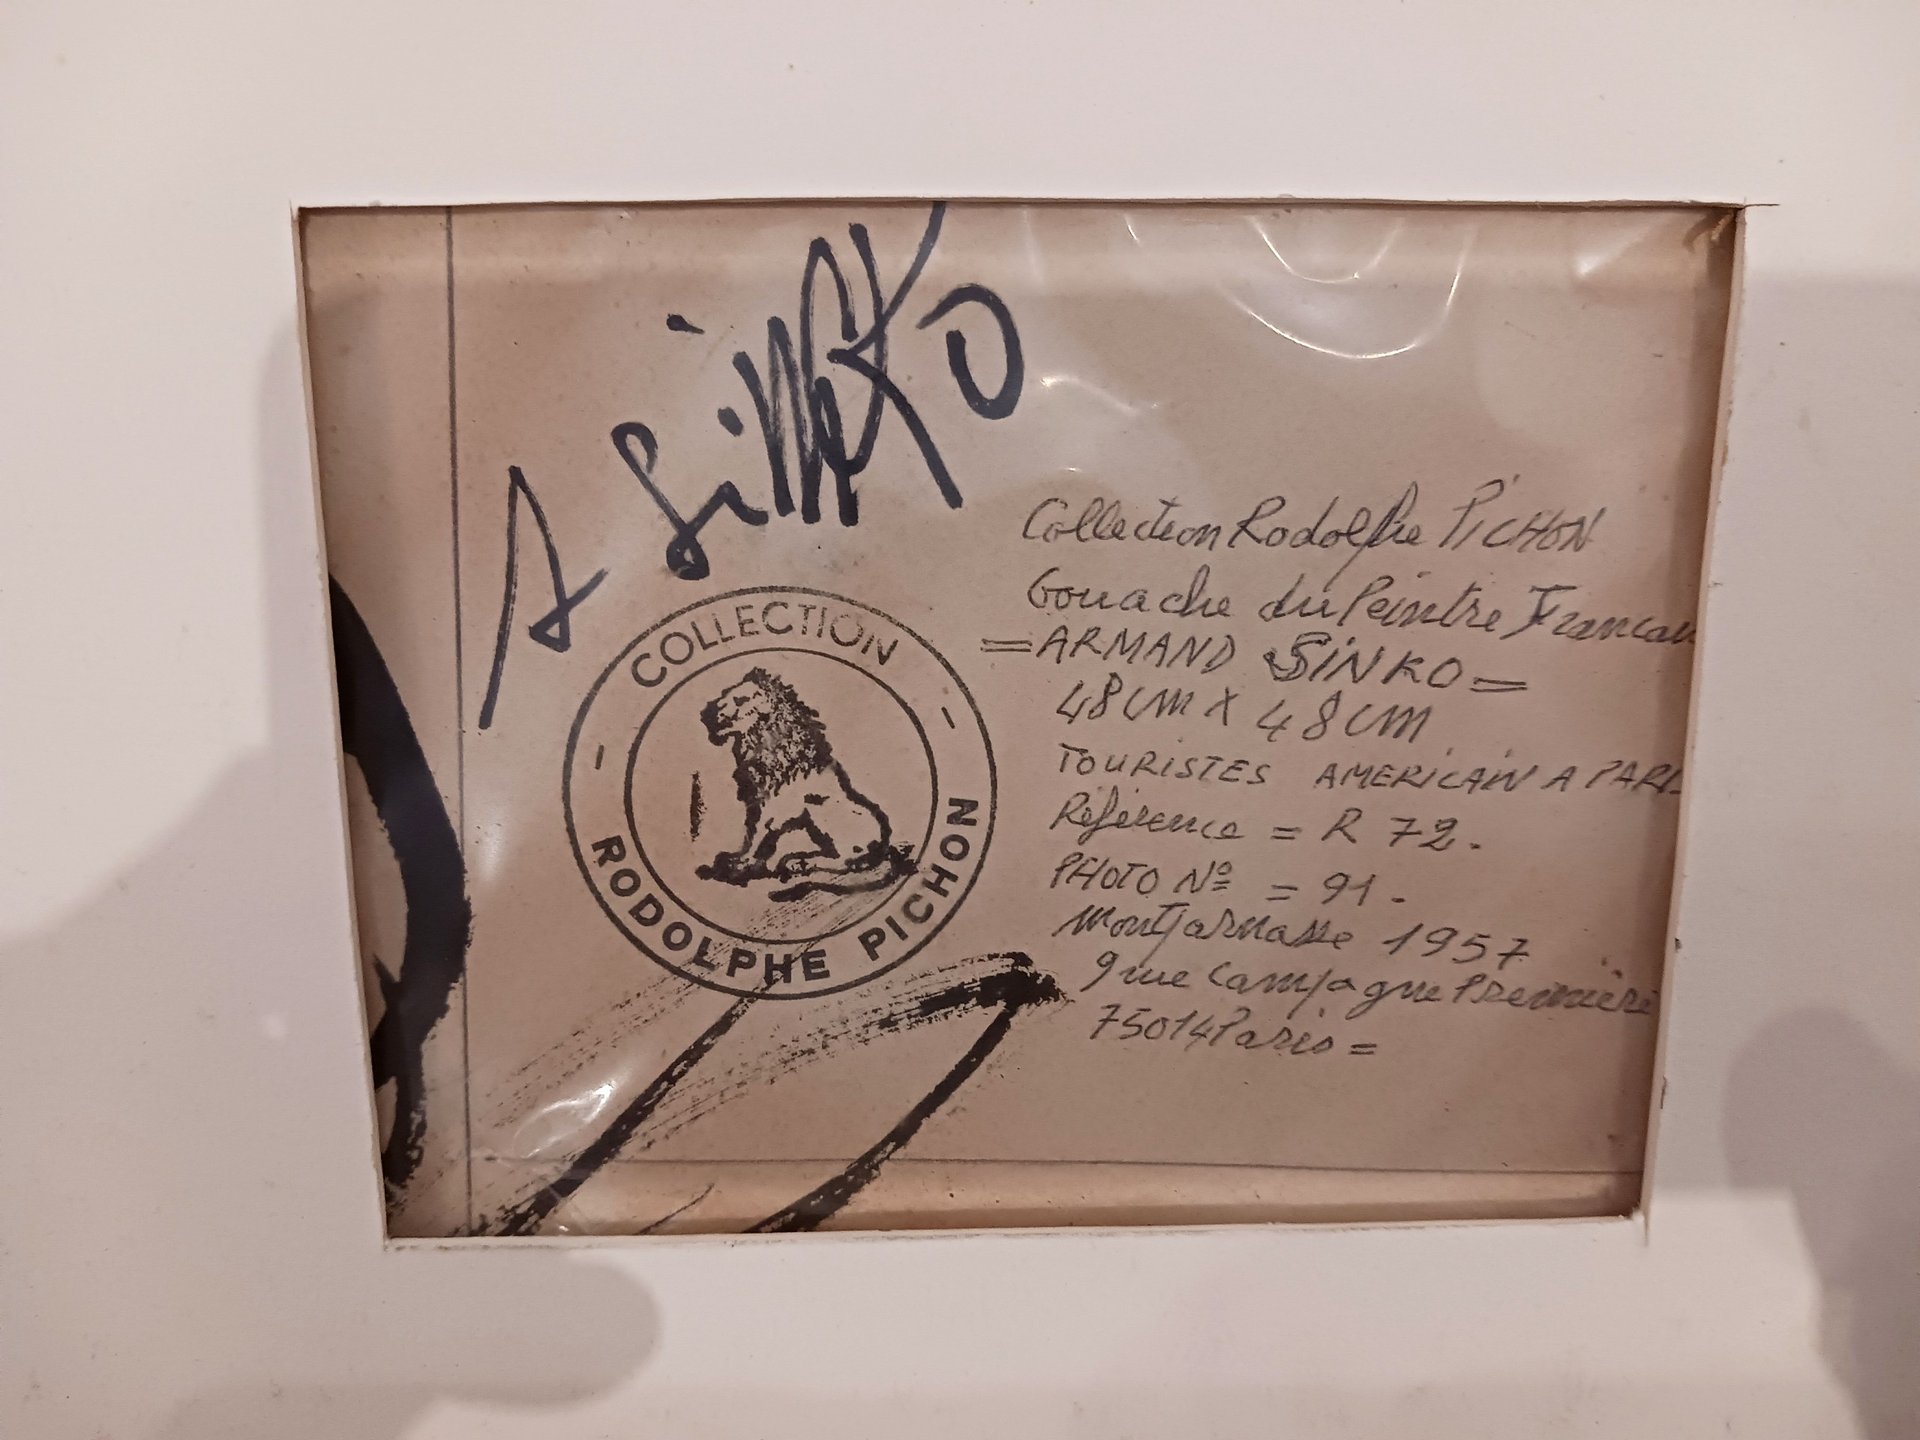 A Sinko
COLLECTION
RODOLPHE PICHON
Collection Rodolphe PICHON
Gouache du Peintre Francais
= ARMAND SINKO =
48 CM X 48 CM
TOURISTES AMERICAIN A PARIS
Réference = R 72.
PHOTO Nº = 91.
Montparnasse 1957
9 rue Campagne Première
75014 Paris =